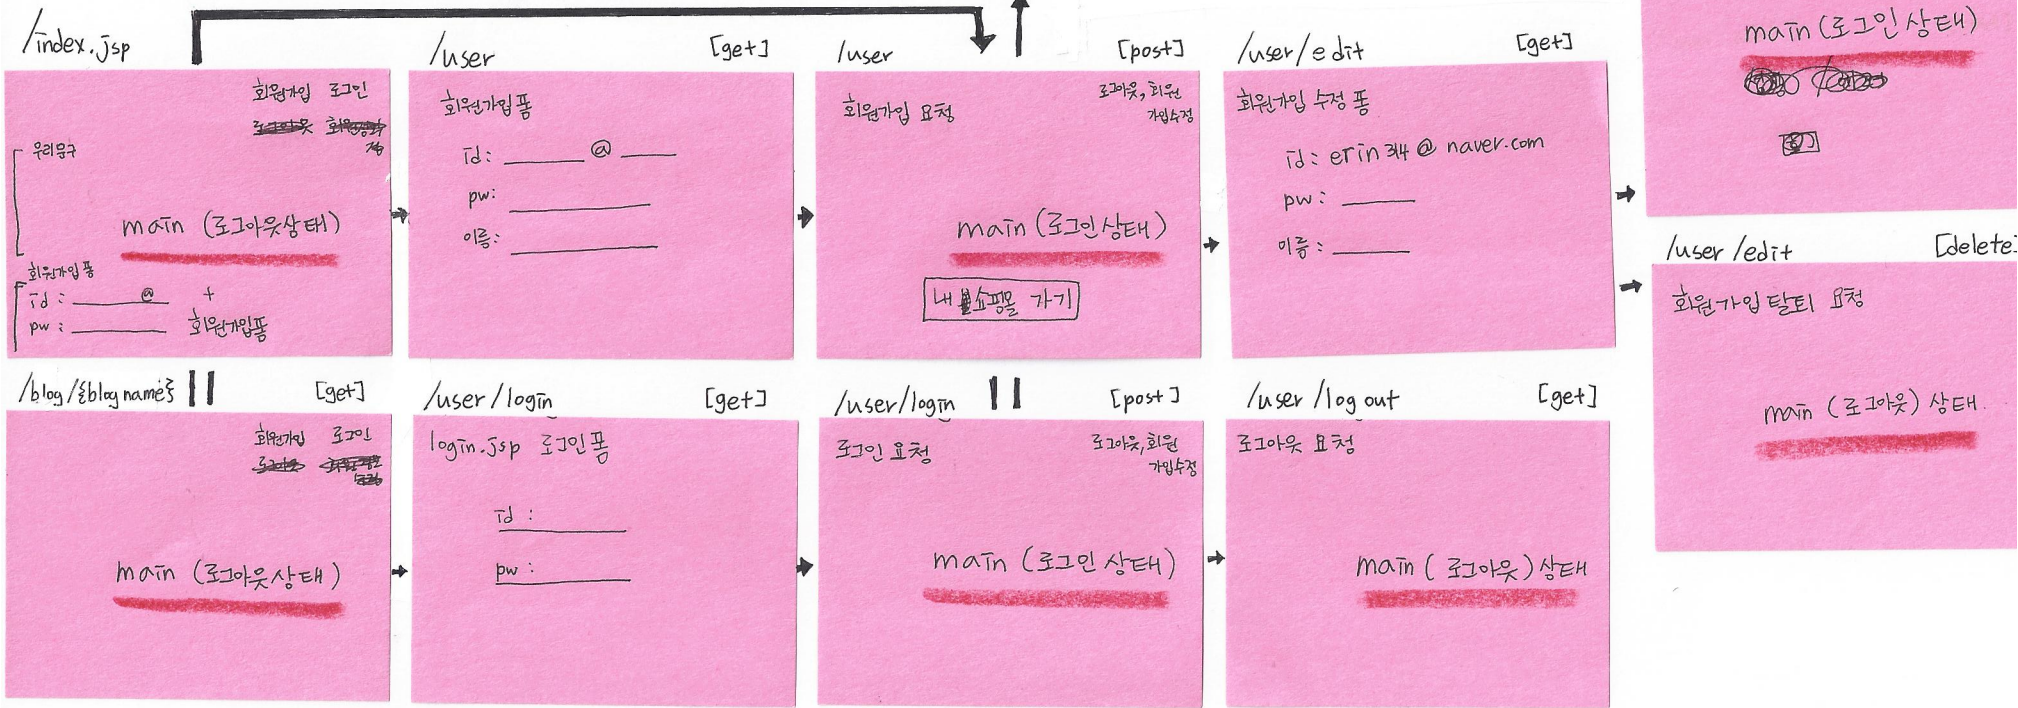 /index.jsp
회원가입 로그인
우리문구
main (로그아웃상태)
회원가입폼
id : @ +
pw : 회원가입폼
/user [get]
회원가입폼
id : @
pw:
이름:
/user [post]
회원가입 요청
로그아웃, 회원
가입수정
main (로그인 상태)
내 쇼핑몰 가기
/user/edit [get]
회원가입 수정 폼
id : erin314@naver.com
pw :
이름 :
main (로그인 상태)
/user/edit [delete]
회원가입 탈퇴 요청
main (로그아웃) 상태
/blog/{blogname} [get]
회원가입 로그인
main (로그아웃상태)
/user/login [get]
login.jsp 로그인 폼
id :
pw :
/user/login [post]
로그인 요청
로그아웃, 회원
가입수정
main (로그인 상태)
/user/logout [get]
로그아웃 요청
main ( 로그아웃) 상태